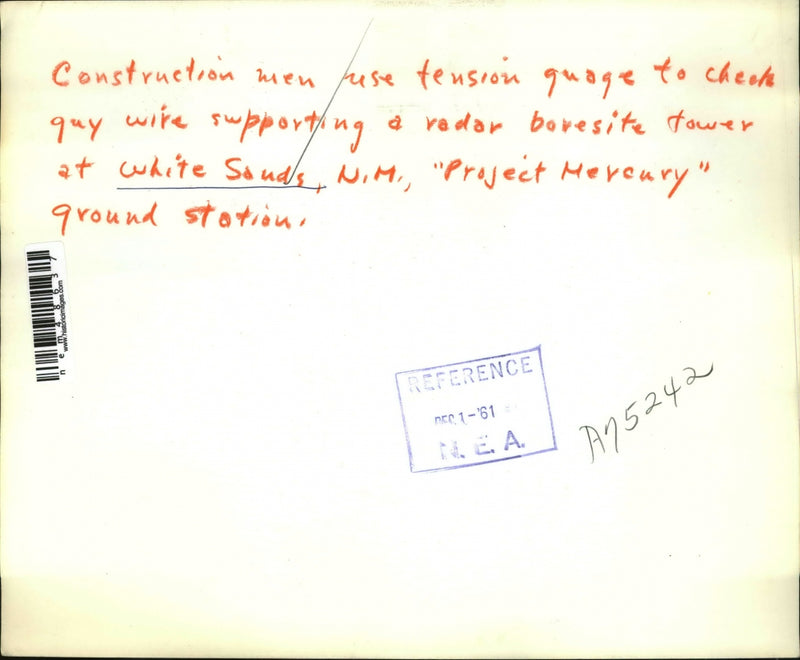 Construction men use tension guage to check
guy wire supporting a radar boresite tower
at White Sands, N.M., "Project Mercury"
ground station.
nem48637
www.historicimages.com
REFERENCE
DEC 1-'61
N. E. A.
A75242